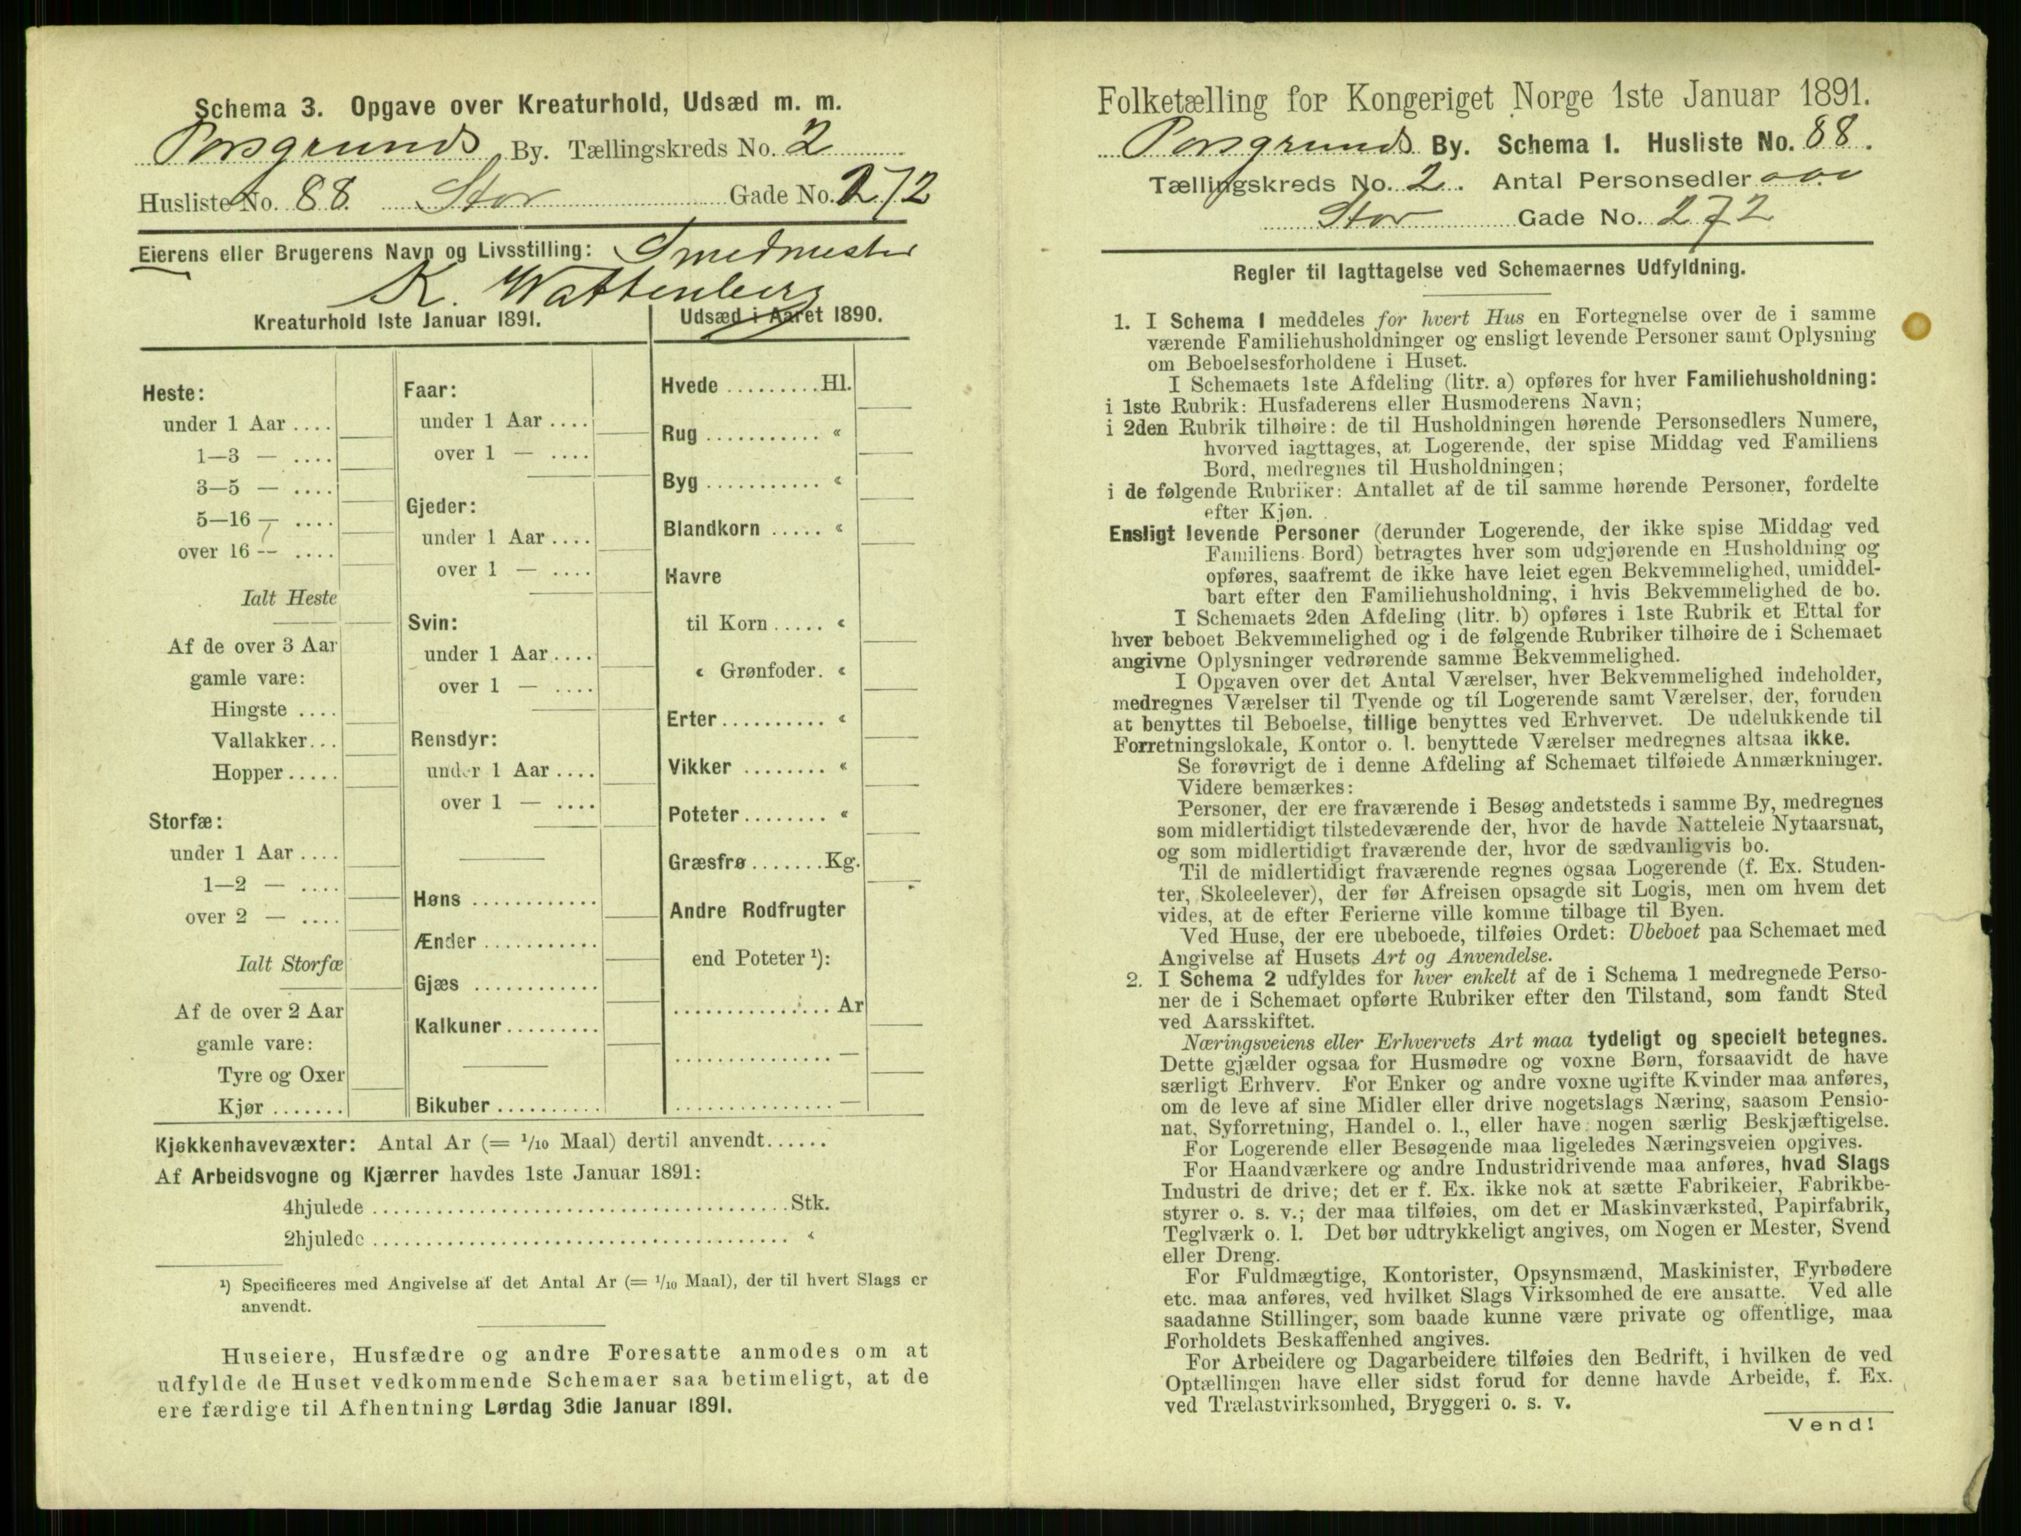 Schema 3. Opgave over Kreaturhold, Udsæd m. m.
Porsgrunds By. Tællingskreds No. 2
Husliste No. 88 Stor Gade No. 272
Eierens eller Brugerens Navn og Livsstilling: Smedmester
K. Wattenberg
Kreaturhold 1ste Januar 1891.
Heste:
under 1 Aar ....
1—3 — ....
3—5 — ....
5—16 — ....
over 16 — ....
Ialt Heste
Af de over 3 Aar
gamle vare:
Hingste ....
Vallakker...
Hopper.....
Storfæ:
under 1 Aar ....
1—2 — ....
over 2 — ....
Ialt Storfæ
Af de over 2 Aar
gamle vare:
Tyre og Oxer
Kjør .......
Faar:
under 1 Aar ....
over 1 — ....
Gjeder:
under 1 Aar ....
over 1 — ....
Svin:
under 1 Aar ....
over 1 — ....
Rensdyr:
under 1 Aar ....
over 1 — ....
Høns ............
Ænder ...........
Gjæs ............
Kalkuner.........
Bikuber ..........
Udsæd i Aaret 1890.
Hvede .........Hl.
Rug ........... «
Byg ........... «
Blandkorn ..... «
Havre
til Korn ..... «
« Grønfoder. «
Erter.......... «
Vikker ........ «
Poteter........ «
Græsfrø .......Kg.
Andre Rodfrugter
end Poteter ¹):
............... Ar
............... —
............... —
Kjøkkenhavevæxter: Antal Ar (= 1/10 Maal) dertil anvendt......
Af Arbeidsvogne og Kjærrer havdes 1ste Januar 1891:
4hjulede .......................................Stk.
2hjulede ....................................... «
¹) Specificeres med Angivelse af det Antal Ar (= 1/10 Maal), der til hvert Slags er
anvendt.
Huseiere, Husfædre og andre Foresatte anmodes om at
udfylde de Huset vedkommende Schemaer saa betimeligt, at de
ere færdige til Afhentning Lørdag 3die Januar 1891.
Folketælling for Kongeriget Norge 1ste Januar 1891.
Porsgrunds By. Schema 1. Husliste No. 88.
Tællingskreds No. 2. Antal Personsedler
Stor Gade No. 272
Regler til Iagttagelse ved Schemaernes Udfyldning.
1. I Schema 1 meddeles for hvert Hus en Fortegnelse over de i samme
værende Familiehusholdninger og ensligt levende Personer samt Oplysning
om Beboelsesforholdene i Huset.
I Schemaets 1ste Afdeling (litr. a) opføres for hver Familiehusholdning:
i 1ste Rubrik: Husfaderens eller Husmoderens Navn;
i 2den Rubrik tilhøire: de til Husholdningen hørende Personsedlers Numere,
hvorved iagttages, at Logerende, der spise Middag ved Familiens
Bord, medregnes til Husholdningen;
i de følgende Rubriker: Antallet af de til samme hørende Personer, fordelte
efter Kjøn.
Ensligt levende Personer (derunder Logerende, der ikke spise Middag ved
Familiens Bord) betragtes hver som udgjørende en Husholdning og
opføres, saafremt de ikke have leiet egen Bekvemmelighed, umiddel-
bart efter den Familiehusholdning, i hvis Bekvemmelighed de bo.
I Schemaets 2den Afdeling (litr. b) opføres i 1ste Rubrik et Ettal for
hver beboet Bekvemmelighed og i de følgende Rubriker tilhøire de i Schemaet
angivne Oplysninger vedrørende samme Bekvemmelighed.
I Opgaven over det Antal Værelser, hver Bekvemmelighed indeholder,
medregnes Værelser til Tyende og til Logerende samt Værelser, der, foruden
at benyttes til Beboelse, tillige benyttes ved Erhvervet. De udelukkende til
Forretningslokale, Kontor o. l. benyttede Værelser medregnes altsaa ikke.
Se forøvrigt de i denne Afdeling af Schemaet tilføiede Anmærkninger.
Videre bemærkes:
Personer, der ere fraværende i Besøg andetsteds i samme By, medregnes
som midlertidigt tilstedeværende der, hvor de havde Natteleie Nytaarsnat,
og som midlertidigt fraværende der, hvor de sædvanligvis bo.
Til de midlertidigt fraværende regnes ogsaa Logerende (f. Ex. Studen-
ter, Skoleelever), der før Afreisen opsagde sit Logis, men om hvem det
vides, at de efter Ferierne ville komme tilbage til Byen.
Ved Huse, der ere ubeboede, tilføies Ordet: Ubeboet paa Schemaet med
Angivelse af Husets Art og Anvendelse.
2. I Schema 2 udfyldes for hver enkelt af de i Schema 1 medregnede Perso-
ner de i Schemaet opførte Rubriker efter den Tilstand, som fandt Sted
ved Aarsskiftet.
Næringsveiens eller Erhvervets Art maa tydeligt og specielt betegnes.
Dette gjælder ogsaa for Husmødre og voxne Børn, forsaavidt de have
særligt Erhverv. For Enker og andre voxne ugifte Kvinder maa anføres,
om de leve af sine Midler eller drive nogetslags Næring, saasom Pensio-
nat, Syforretning, Handel o. l., eller have nogen særlig Beskjæftigelse.
For Logerende eller Besøgende maa ligeledes Næringsveien opgives.
For Haandværkere og andre Industridrivende maa anføres, hvad Slags
Industri de drive; det er f. Ex. ikke nok at sætte Fabrikeier, Fabrikbe-
styrer o. s. v.; der maa tilføies, om det er Maskinværksted, Papirfabrik,
Teglværk o. l. Det bør udtrykkeligt angives, om Nogen er Mester, Svend
eller Dreng.
For Fuldmægtige, Kontorister, Opsynsmænd, Maskinister, Fyrbødere
etc. maa anføres, ved hvilket Slags Virksomhed de ere ansatte. Ved alle
saadanne Stillinger, som baade kunne være private og offentlige, maa
Forholdets Beskaffenhed angives.
For Arbeidere og Dagarbeidere tilføies den Bedrift, i hvilken de ved
Optællingen have eller sidst forud for denne havde Arbeide, f. Ex.
ved Trælastvirksomhed, Bryggeri o. s. v.
Vend!